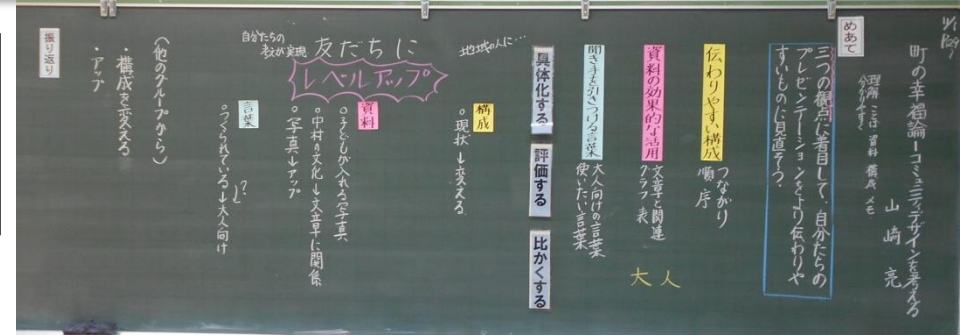 町の幸福論―コミュニティデザインを考える
山崎 亮
理解 ことば 資料 構成 メモ
分かりやすく
めあて
三つの観点に着目して、自分たちの
プレゼンテーションをより伝わりや
すいものに見直そう。
伝わりやすい構成
つながり
順序
資料の効果的な活用
文章と関連
グラフ 表
大人
聞き手を引きつける言葉
大人向けの言葉
使いたい言葉
具体化する
評価する
比かくする
地域の人に…
構成
○現状→変える
友だちに
レベルアップ
自分たちの
資料
○子どもが入れる写真
○中村の文化→文章に関係
○写真→アップ
言葉
○つくられている→大人向け
?
(他のグループから)
・構成を変える
・アップ
振り返り